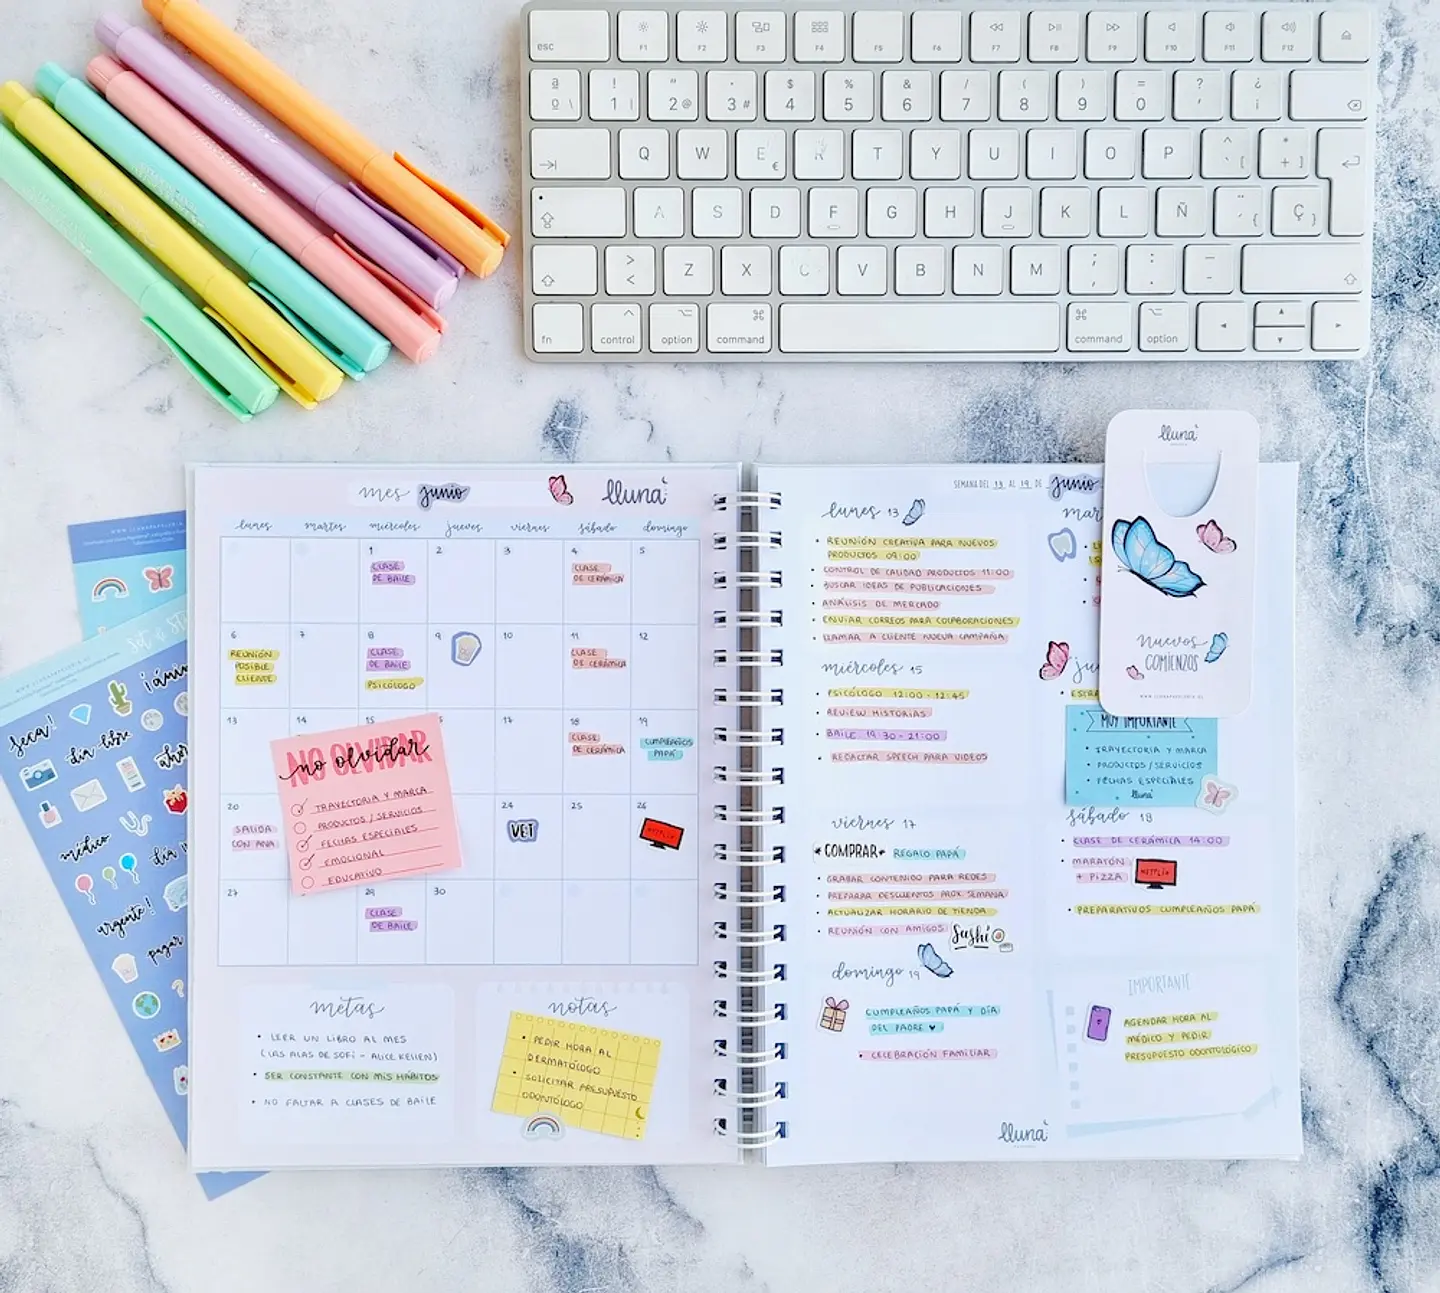 esc
F1
F2
F3
F4
F5
F6
F7
F8
F9
F10
F11
F12
ª º \
! 1 |
" 2 @
· 3 #
$ 4
% 5
& 6
/ 7
( 8
) 9
= 0
? '
¿ ¡
Q
W
E €
R
T
Y
U
I
O
P
^ ` [
* + ]
A
S
D
F
G
H
J
K
L
Ñ
¨ ´ {
Ç }
> <
Z
X
C
V
B
N
M
; ,
: .
_ -
fn
control
option
command
command
option
mes junio
lluna
lunes martes miércoles jueves viernes sábado domingo
1 2 3 4 5
CLASE
DE BAILE
CLASE
DE CERÁMICA
6 7 8 9 10 11 12
REUNIÓN
POSIBLE
CLIENTE
CLASE
DE BAILE
PSICÓLOGO
CLASE
DE CERÁMICA
13 14 15 17 18 19
CLASE
DE CERÁMICA
CUMPLEAÑOS
PAPÁ
NO OLVIDAR
no olvidar
TRAYECTORIA Y MARCA
PRODUCTOS / SERVICIOS
FECHAS ESPECIALES
EMOCIONAL
EDUCATIVO
20 24 25 26
SALIDA
CON ANA
VET
NETFLIX
27 29 30
CLASE
DE BAILE
metas
• LEER UN LIBRO AL MES
(LAS ALAS DE SOFI - ALICE KELLEN)
• SER CONSTANTE CON MIS HÁBITOS
• NO FALTAR A CLASES DE BAILE
notas
• PEDIR HORA AL
DERMATÓLOGO
• SOLICITAR PRESUPUESTO
ODONTÓLOGO
SEMANA DEL 13 AL 19 DE junio
lunes 13
• REUNIÓN CREATIVA PARA NUEVOS
PRODUCTOS 09:00
• CONTROL DE CALIDAD PRODUCTOS 11:00
• BUSCAR IDEAS DE PUBLICACIONES
• ANÁLISIS DE MERCADO
• ENVIAR CORREOS PARA COLABORACIONES
• LLAMAR A CLIENTE NUEVA CAMPAÑA
mar
miércoles 15
• PSICÓLOGO 12:00 - 12:45
• REVIEW HISTORIAS
• BAILE 19:30 - 21:00
• REDACTAR SPEECH PARA VIDEOS
ju
ESTRA
MUY IMPORTANTE
• TRAYECTORIA Y MARCA
• PRODUCTOS / SERVICIOS
• FECHAS ESPECIALES
lluna
viernes 17
*COMPRAR* REGALO PAPÁ
• GRABAR CONTENIDO PARA REDES
• PREPARAR DESCUENTOS PROX SEMANA
• ACTUALIZAR HORARIO DE TIENDA
• REUNIÓN CON AMIGOS Sushi
sábado 18
• CLASE DE CERÁMICA 14:00
• MARATÓN
+ PIZZA NETFLIX
• PREPARATIVOS CUMPLEAÑOS PAPÁ
domingo 19
CUMPLEAÑOS PAPÁ Y DÍA
DEL PADRE ♥
• CELEBRACIÓN FAMILIAR
IMPORTANTE
AGENDAR HORA AL
MÉDICO Y PEDIR
PRESUPUESTO ODONTOLÓGICO
lluna
lluna
Nuevos
COMIENZOS
Seca!
día libre
médico
urgente!
pagar